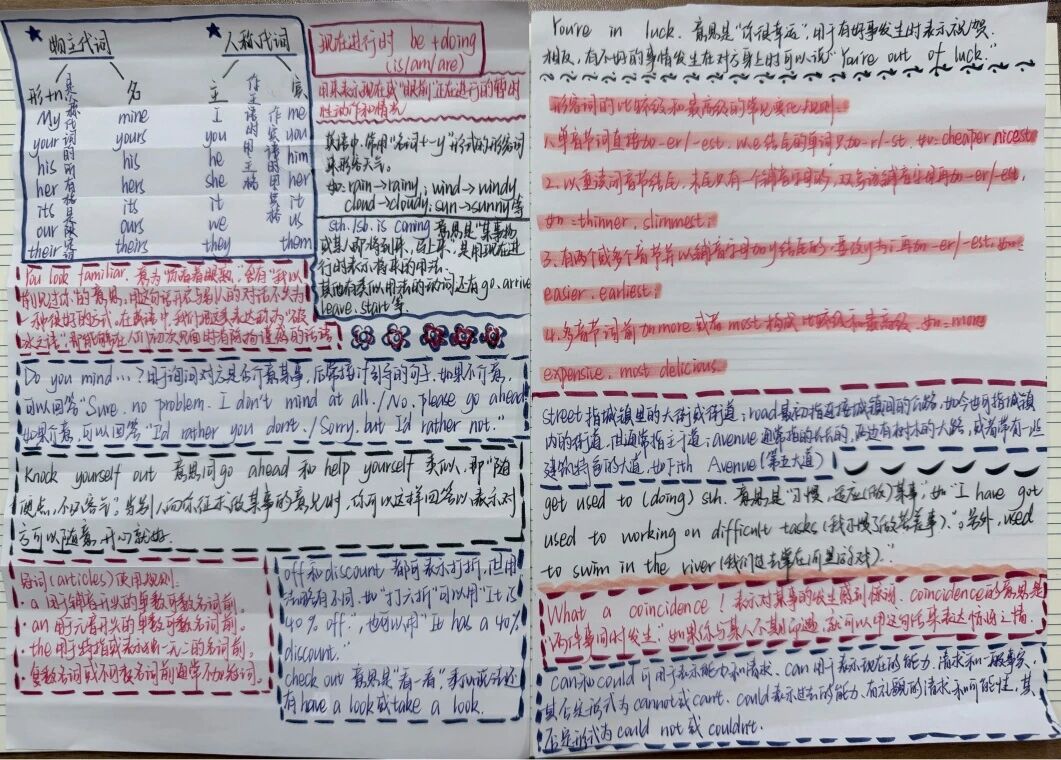 物主代词 人称代词
形+n 名 主 宾
是我代词的所有格是限定
作主语的用主格
作宾语的用宾格
My mine I me
your yours you you
his his he him
her hers she her
its its it it
our ours we us
their theirs they them
现在进行时 be +doing
(is/am/are)
用来表示现在或"眼前"正在进行的暂时
性动作和情况
英语中,常用"名词+-y"形式的形容词
来形容天气。
如: rain→rainy, ; wind→windy
cloud→cloudy; sun→sunny等
sth./sb. is coming 意思是"某事物
或某人即将到来、马上来,是用现在进
行时表示将来的用法。
其他有类似用法的动词还有go、arrive
leave、start等.
You look familiar. 意为"你看着眼熟."含有"我以
前见过你"的意思。用这句话开启与别人的对话不失为
一种很好的方式。在英语中,我们把这类表达称为"破
冰之语",即能够在人们初次见面时消除拘谨感的话语
Do you mind…?用于询问对方是否介意某事,后常接if引导的句子.如果不介意,
可以回答"Sure, no problem. I don't mind at all./No, please go ahead
如果介意,可以回答"I'd rather you don't./Sorry, but I'd rather not."
Knock yourself out 意思同go ahead 和 help yourself 类似,即"随
便点,不必客气".当别人向你征求做某事的意见时,你可以这样回答以表示对
方可以随意,开心就好.
冠词(articles)使用规则.
·a 用于辅音开头的单数可数名词前.
·an 用于元音开头的单数可数名词前.
·the用于特指或表示独一无二的名词前.
·复数名词或不可数名词前通常不加冠词.
off和discount 都可表示打折,但用
法略有不同.如"打六折"可以用"It is
40% off.",也可以用"It has a 40%
discount."
check out 意思是"看一看",类似短语还
有have a look或take a look.
You're in luck. 意思是"你很幸运",用于有好事发生时表示祝贺.
相反,有不好的事情发生在对方身上时可以说"You're out of luck."
形容词的比较级和最高级的常见变化规则.
1.单音节词直接加-er/-est.以e结尾的单词只加-r/-st. 如: cheaper nicest
2.以重读闭音节结尾,末尾只有一个辅音字母的,双写该辅音字母再加-er/-est,
如:thinner、slimmest;
3.有两个或多个音节并以辅音字母加y结尾的,要改y为i再加-er/-est.如:
easier、earliest;
4.多音节词前加more 或者 most 构成比较级和最高级.如:more
expensive、most delicious.
street指城镇里的大街或街道;road最初指连接城镇间的公路,如今也可指城镇
内的街道,但通常指主干道;avenue 通常指的长的,两边有树木的大路,或者带有一些
建筑特色的大道,如Fifth Avenue(第五大道)
get used to (doing) sth. 意思是"习惯,适应(做)某事",如"I have got
used to working on difficult tasks(我习惯了做苦差事)."。另外,used
to swim in the river(我们过去常在河里游泳)."
What a coincidence!表示对某事的发生感到惊讶. coincidence的意思是
"两件事同时发生".如果你与某人不期而遇,就可以用这句话来表达惊讶之情.
can和could可用于表示能力和请求. can用于表示现在的能力、请求和一般事实,
其否定形式为cannot或can't. could表示过去的能力、有礼貌的请求和可能性,其
否定形式为could not或couldn't.